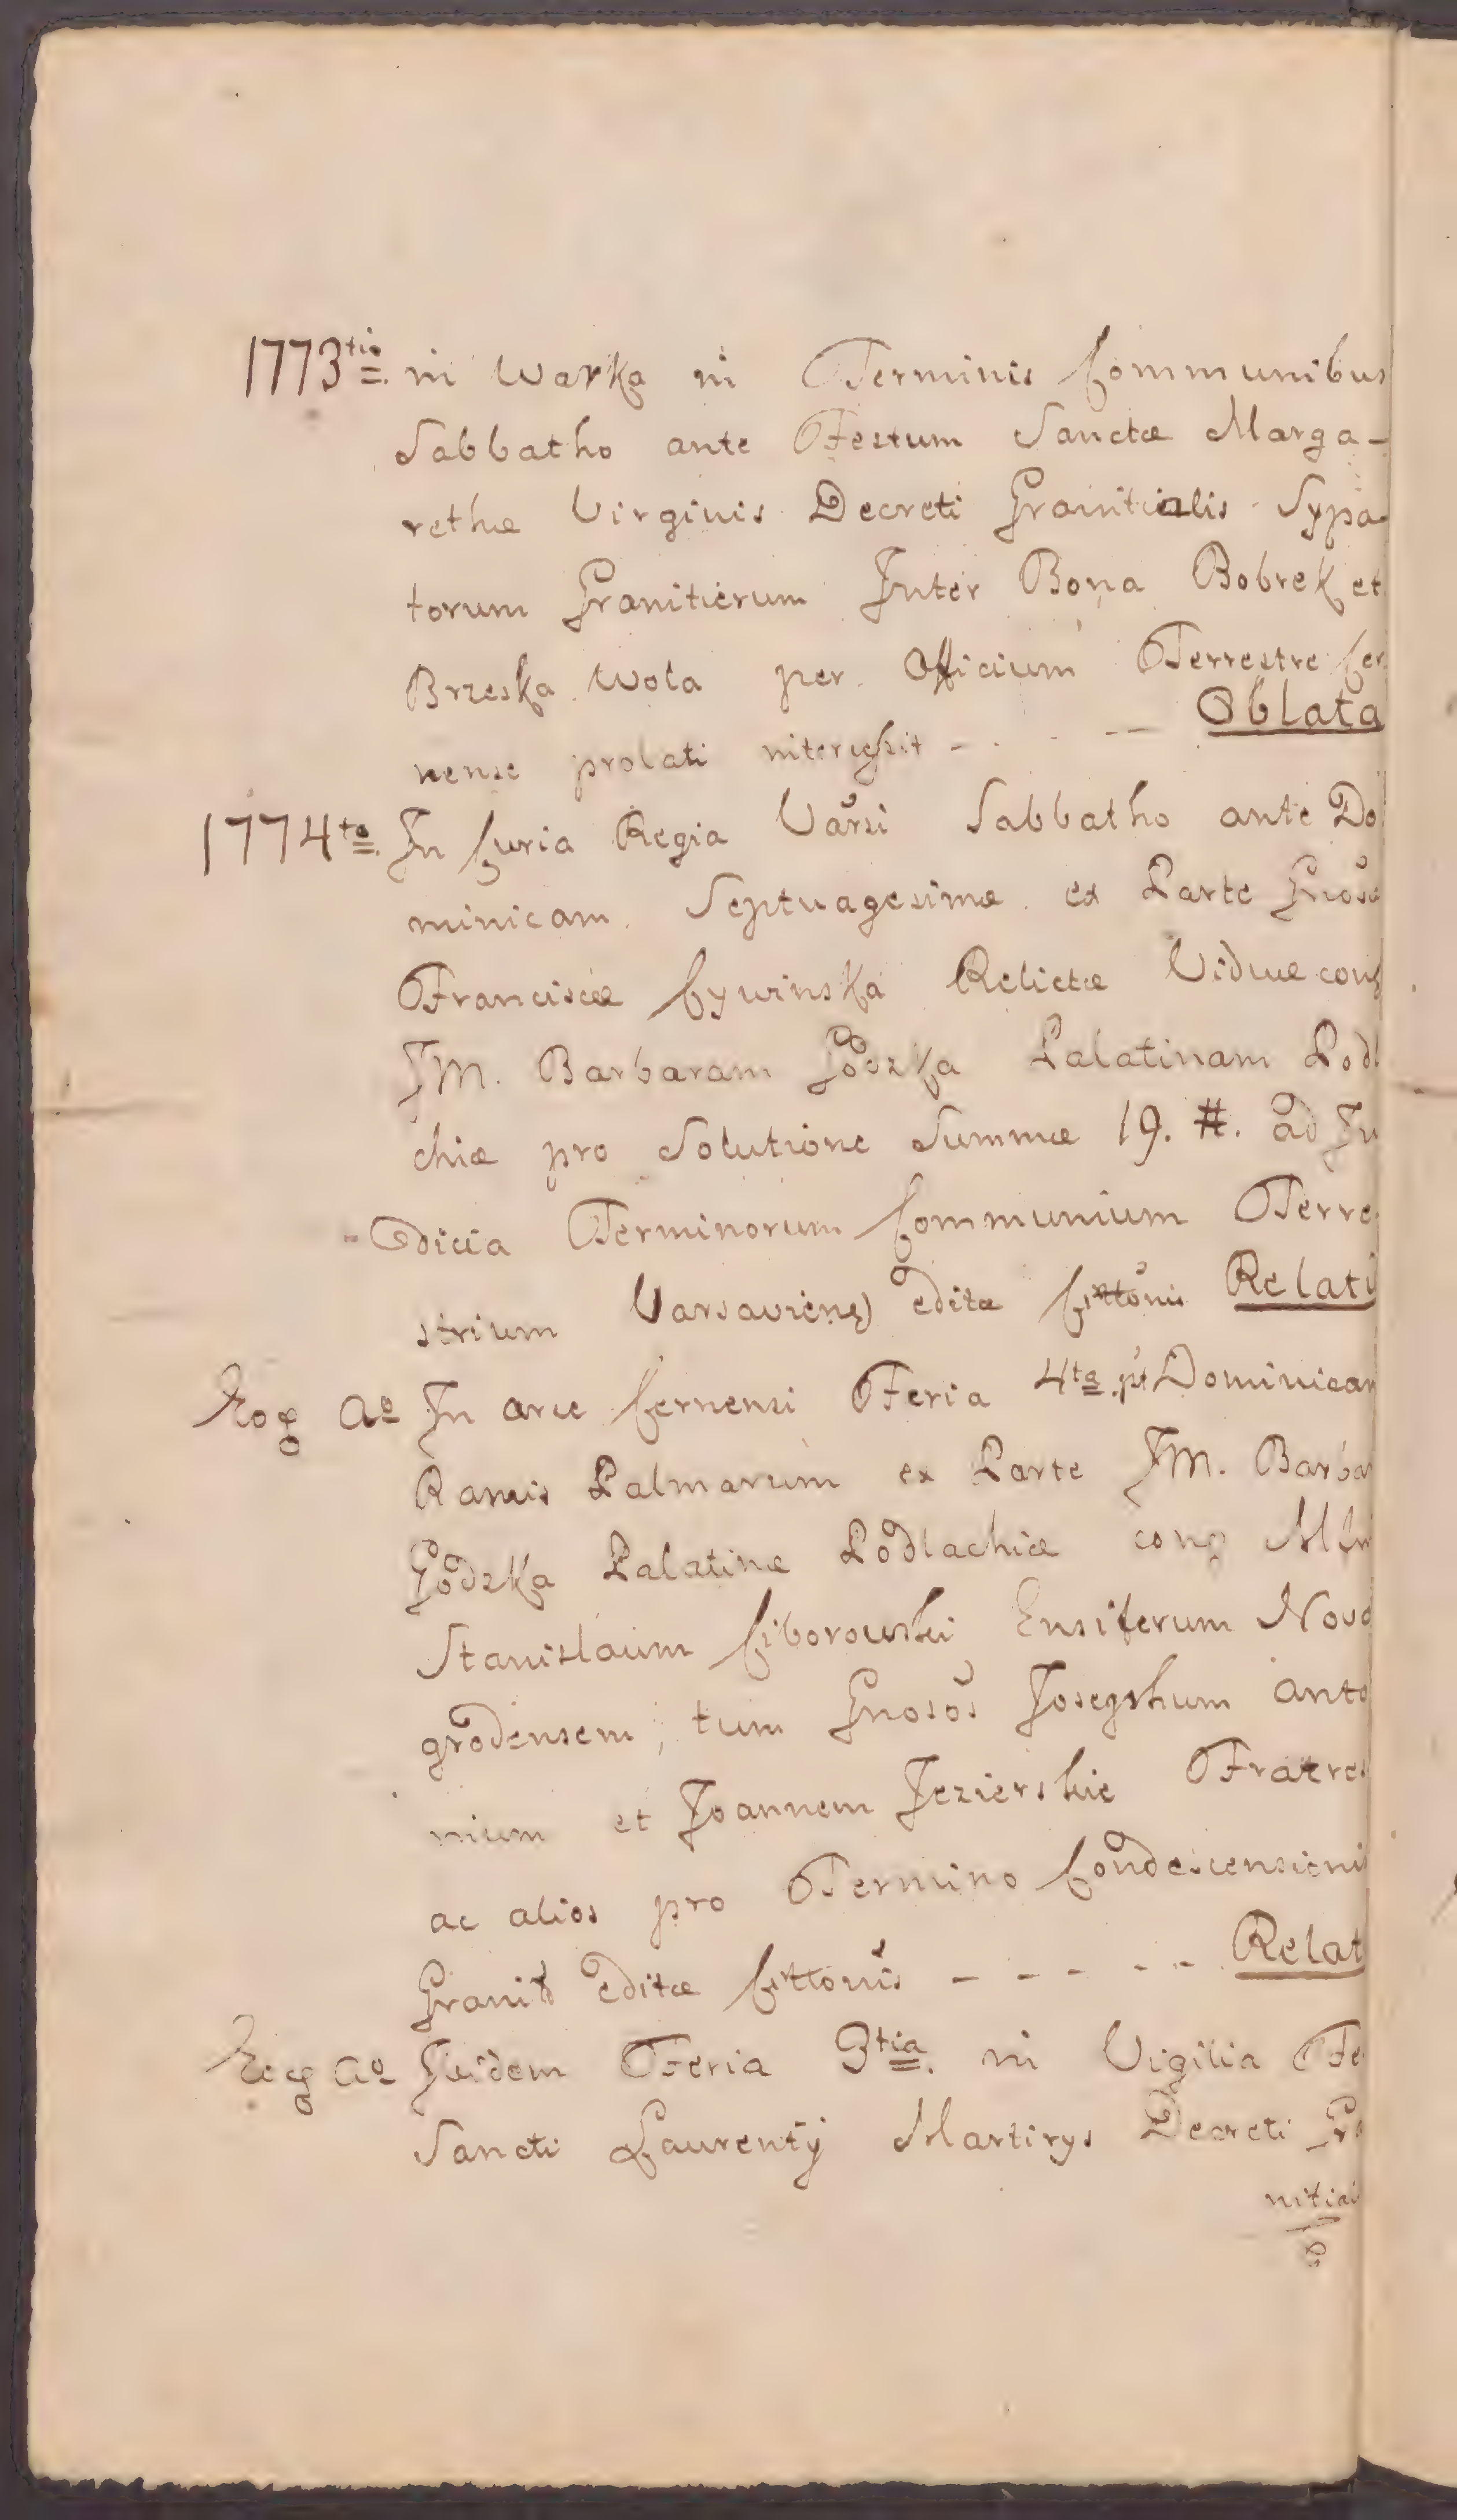 1773tio. in Warka in Terminis Communibus
Sabbatho ante Festum Sanctæ Marga-
rethæ Virginis Decreti Granitialis Sypa-
torum Granitierum Inter Bona Bobrek et
Brzeska Wola per Officium Terrestre Cer
nense prolati - . - — Oblata
1774to. In Curia Regia Varsi Sabbatho ante Do
minicam Septuagesimæ ex Parte Gnosæ
Franciscæ Cywinska Relictæ Viduæ
JM. Barbaram Godzka Palatinam Podl
chiæ pro Solutione Summæ 19. #. ad Ju
dicia Terminorum Communium Terre
strium Varsaviens editæ Cittonis Relati
Eog Ao In arce Cernensi Feria 4ta pt Dominicam
Ramis Palmarum ex Parte JM. Barbar
Godzka Palatinæ Podlachiæ
Stanislaum Ciborowski Ensiferum Novo
grodensem, tum Gnosos Josephum Anto
nium et Joannem Jezierskie Fratres
ac alios pro Termino Condescensionis
Granit editæ Cittonis - - - - - Relat
Eog Ao Ibidem Feria 3tia. in Vigilia Fe
Sancti Laurentij Martirys Decreti Gra
nitial